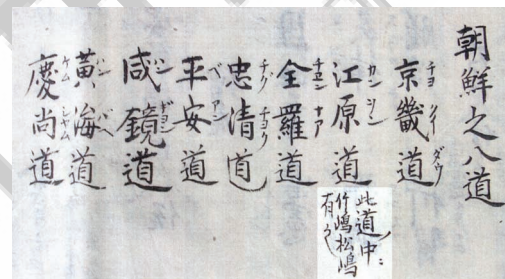 朝鮮之八道
京畿道
江原道
此道中ニ
竹嶋松嶋
有之
全羅道
忠清道
平安道
ベアン
咸鏡道
黄海道
慶尚道
ケム シヤム